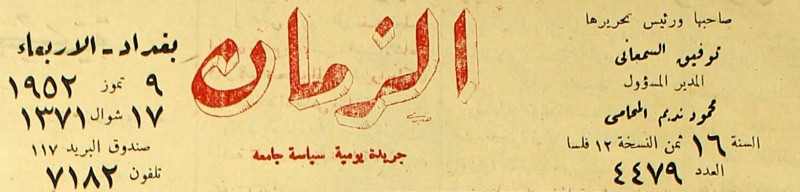 صاحبها ورئيس تحريرها
توفيق السمعاني
المدير المسؤول
محمود نديم المحامي
السنة ١٦ ثمن النسخة ١٢ فلسا
العدد ٤٤٧٩
الزمان
جريدة يومية سياسة جامعه
بغداد - الاربعاء
٩ تموز ١٩٥٢
١٧ شوال ١٣٧١
صندوق البريد ١١٧
تلفون ٧١٨٢